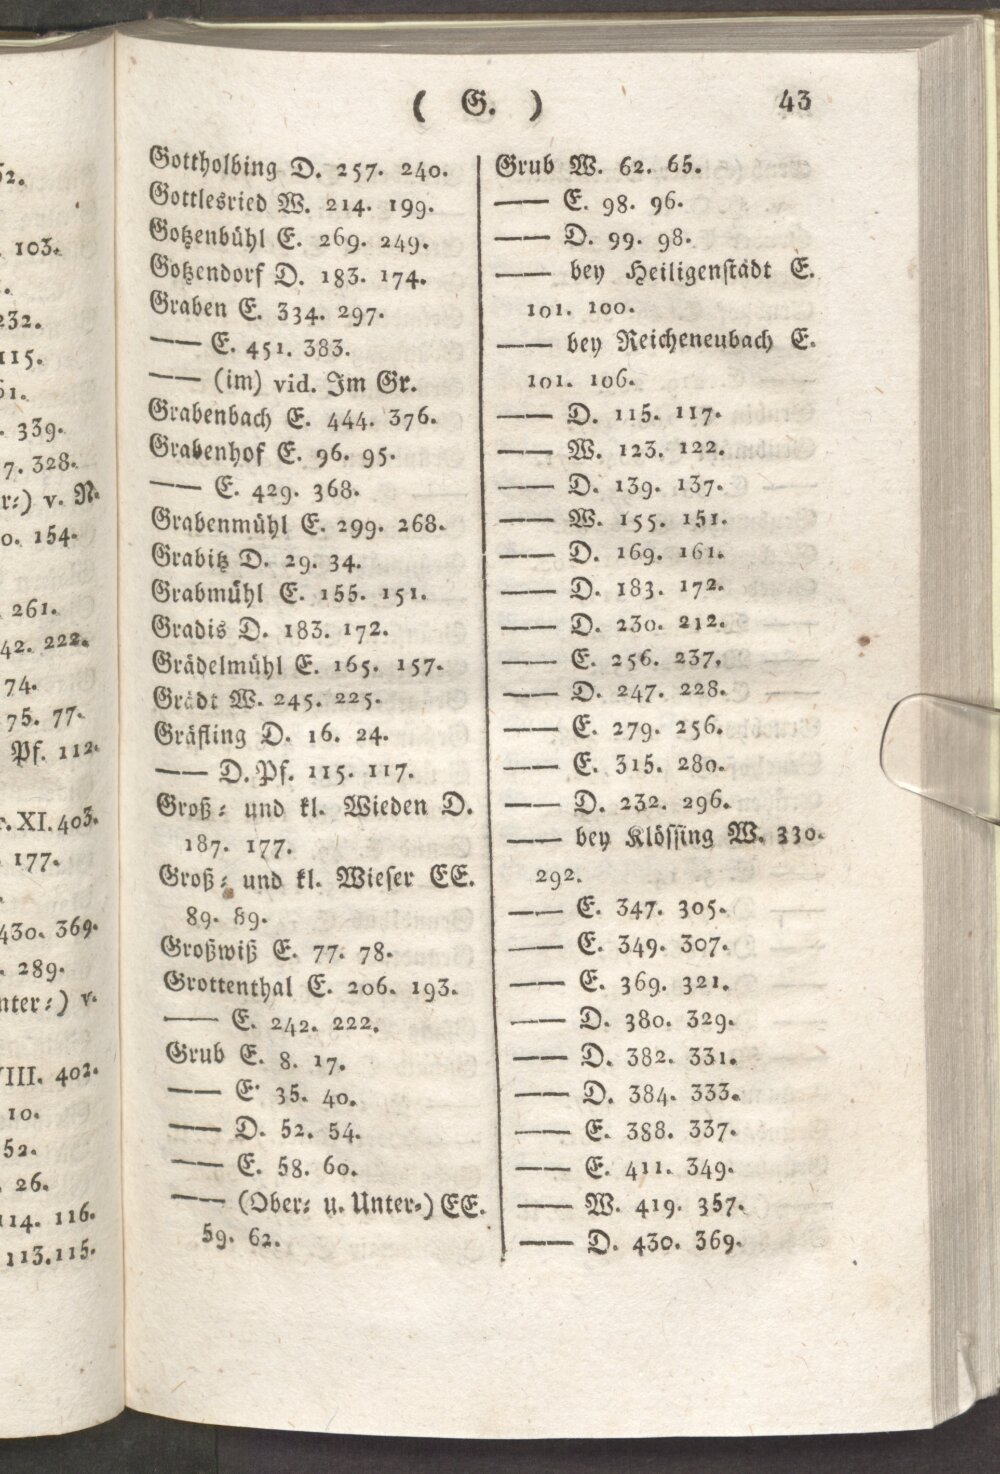 ( G. ) 43
Gottholbing D. 257. 240.
Gottlesried W. 214. 199.
Gotzenbühl E. 269. 249.
Gotzendorf D. 183. 174.
Graben E. 334. 297.
—— E. 451. 383.
—— (im) vid. Im Gr.
Grabenbach E. 444. 376.
Grabenhof E. 96. 95.
—— E. 429. 368.
Grabenmühl E. 299. 268.
Grabitz D. 29. 34.
Grabmühl E. 155. 151.
Gradis D. 183. 172.
Grädelmühl E. 165. 157.
Grädt W. 245. 225.
Gräfling D. 16. 24.
—— D. Pf. 115. 117.
Groß- und kl. Wieden D.
187. 177.
Groß- und kl. Wieser EE.
89. 89.
Großwiß E. 77. 78.
Grottenthal E. 206. 193.
—— E. 242. 222.
Grub E. 8. 17.
—— E. 35. 40.
—— D. 52. 54.
—— E. 58. 60.
—— (Ober- u. Unter-) EE.
59. 62.
Grub W. 62. 65.
—— E. 98. 96.
—— D. 99. 98.
—— bey Heiligenstädt E.
101. 100.
—— bey Reicheneubach E.
101. 106.
—— D. 115. 117.
—— W. 123. 122.
—— D. 139. 137.
—— W. 155. 151.
—— D. 169. 161.
—— D. 183. 172.
—— D. 230. 212.
—— E. 256. 237.
—— D. 247. 228.
—— E. 279. 256.
—— E. 315. 280.
—— D. 232. 296.
—— bey Klössing W. 330.
292.
—— E. 347. 305.
—— E. 349. 307.
—— E. 369. 321.
—— D. 380. 329.
—— D. 382. 331.
—— D. 384. 333.
—— E. 388. 337.
—— E. 411. 349.
—— W. 419. 357.
—— D. 430. 369.